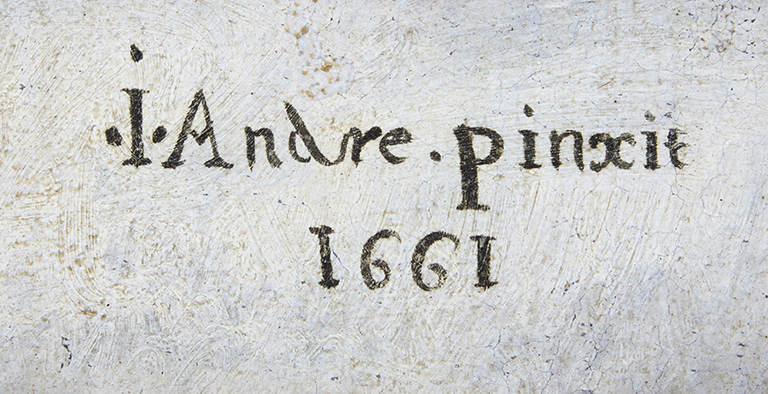 ·I·Andre·pinxit
1661